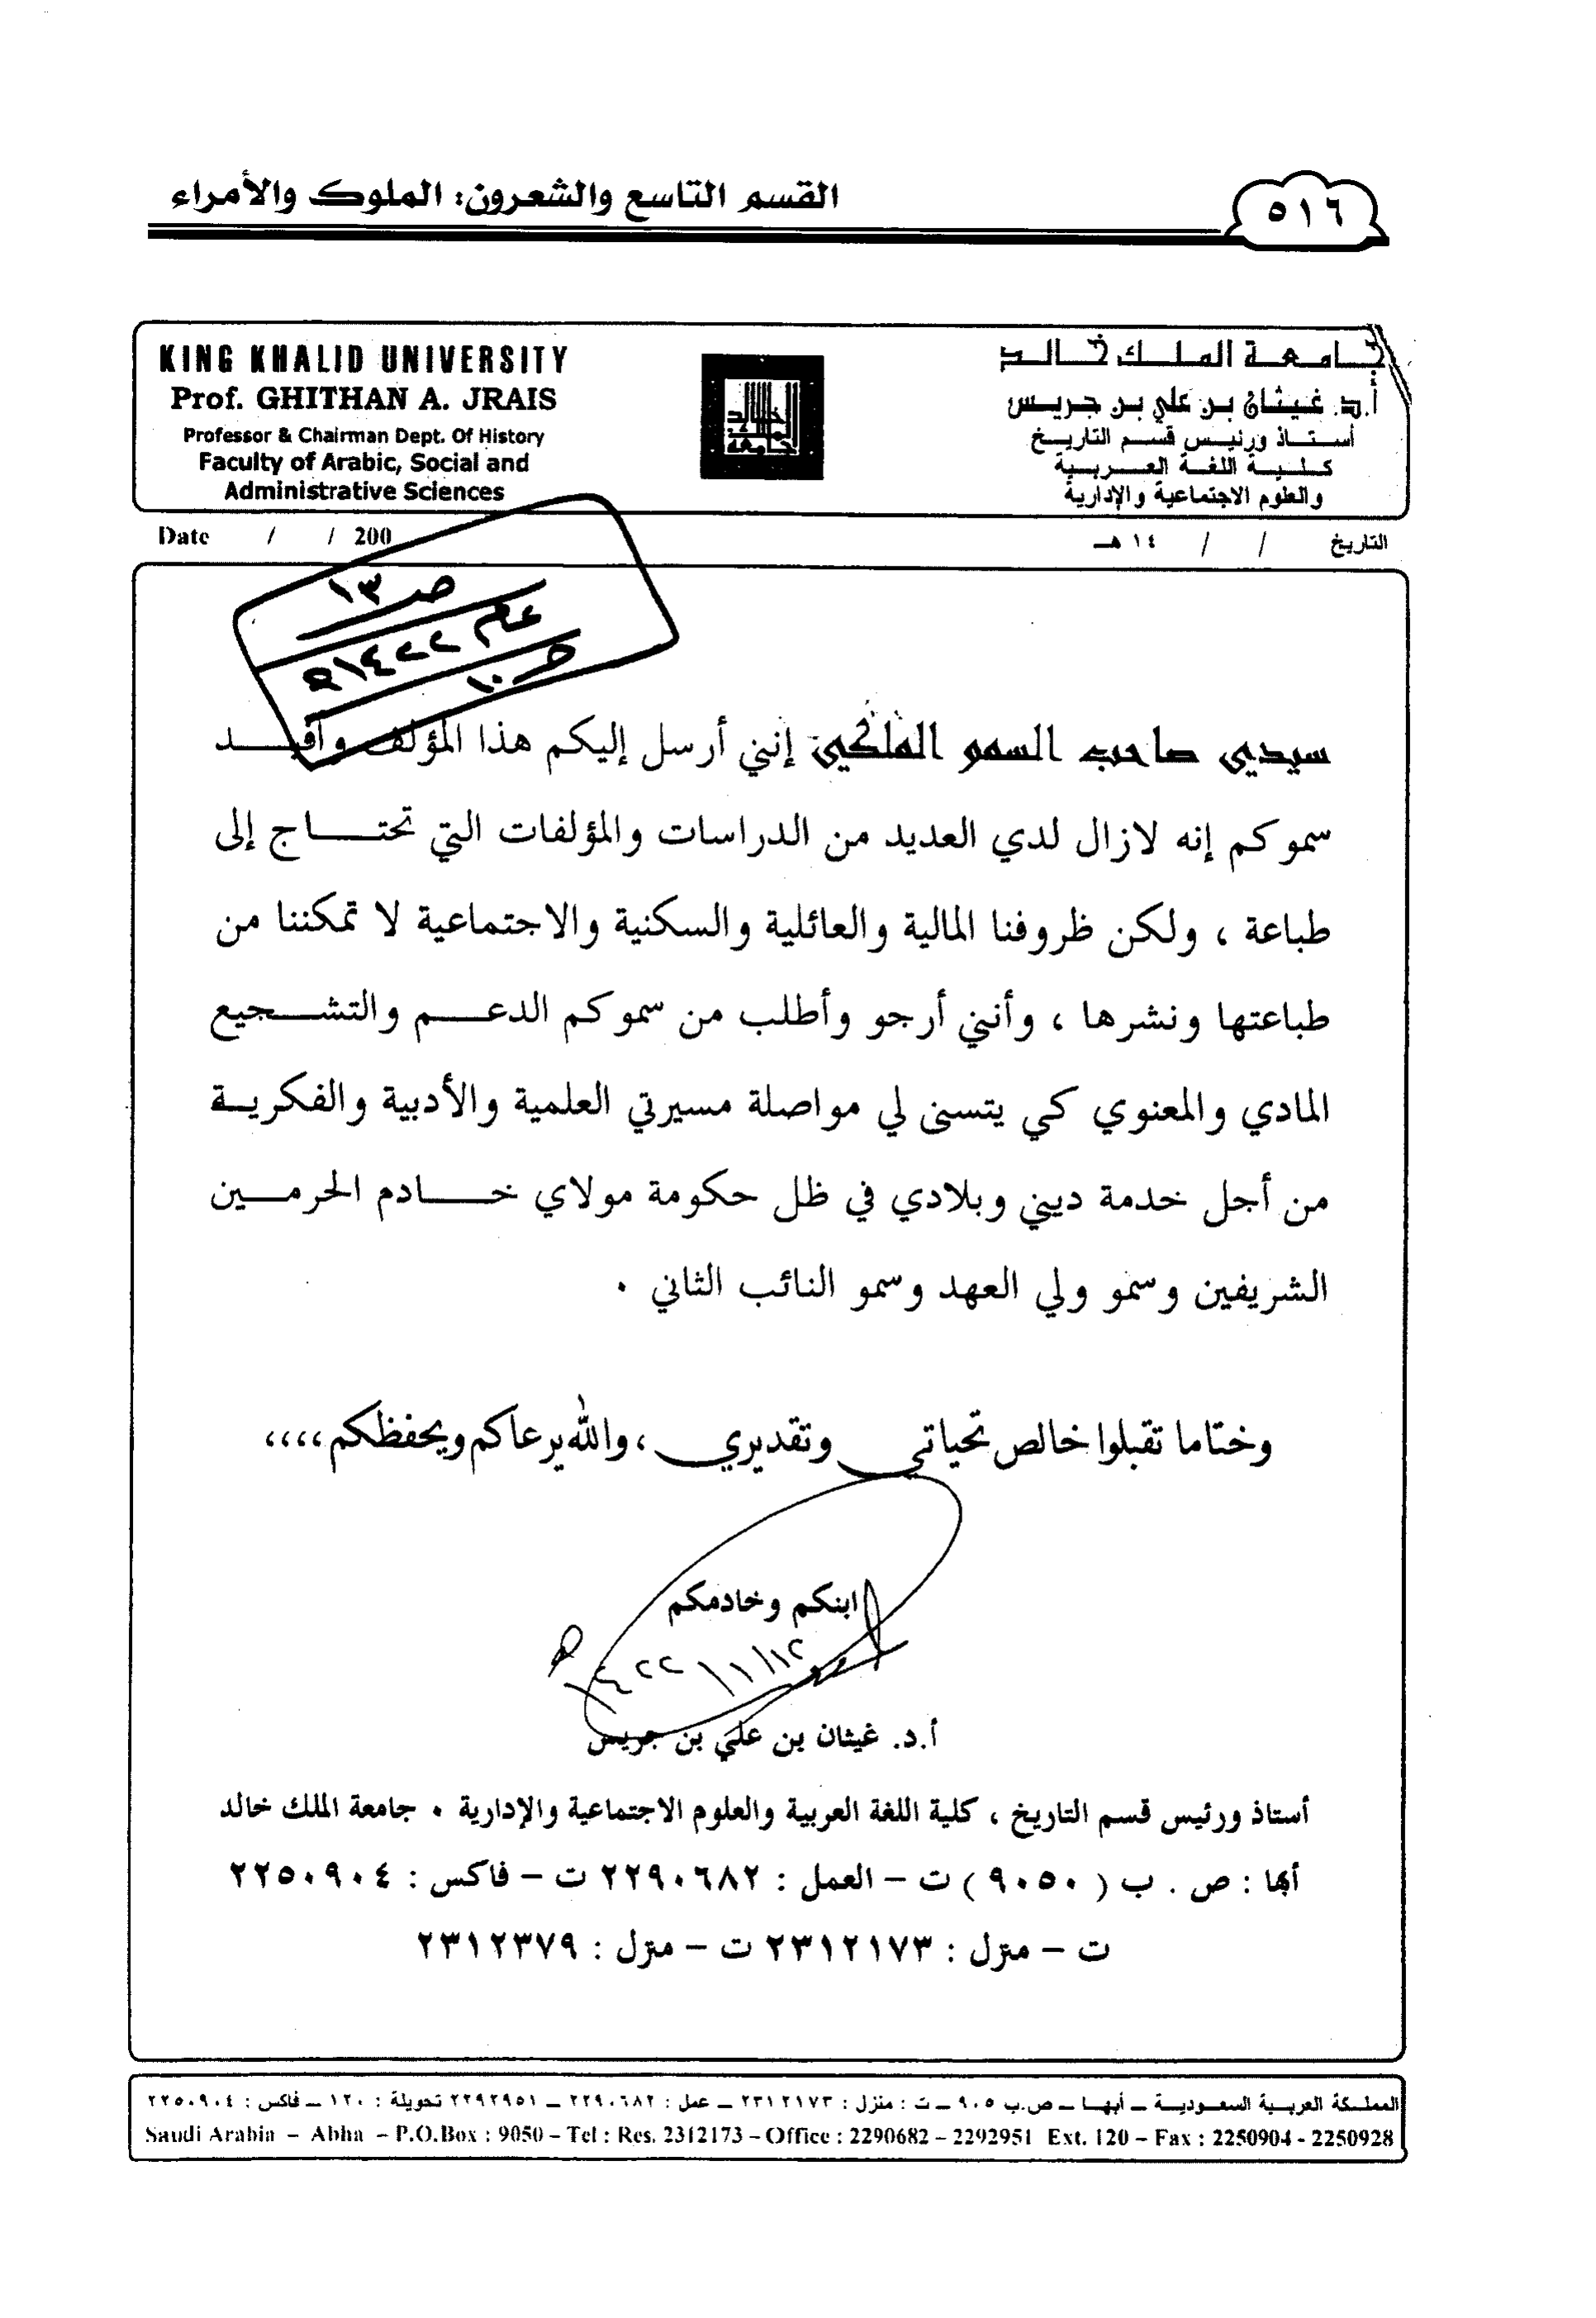 القسم التاسع والشعرون: الملوك والأمراء
٥١٦
KING KHALID UNIVERSITY
Prof. GHITHAN A. JRAIS
Professor & Chairman Dept. Of History
Faculty of Arabic, Social and
Administrative Sciences
جامعة الملك خالد
أ.د. غيثان بن علي بن جريس
أستاذ ورئيس قسم التاريخ
كلية اللغة العربية
والعلوم الاجتماعية والإدارية
Date / / 200
التاريخ / / ١٤ هـ
صـ ١٣
عام ١٤٢٢هـ
حـ ١٠
سيدي صاحب السمو الملكي إنني أرسل إليكم هذا المؤلف وأفيد
سموكم إنه لازال لدي العديد من الدراسات والمؤلفات التي تحتاج إلى
طباعة ، ولكن ظروفنا المالية والعائلية والسكنية والاجتماعية لا تمكننا من
طباعتها ونشرها ، وأنني أرجو وأطلب من سموكم الدعم والتشجيع
المادي والمعنوي كي يتسنى لي مواصلة مسيرتي العلمية والأدبية والفكرية
من أجل خدمة ديني وبلادي في ظل حكومة مولاي خادم الحرمين
الشريفين وسمو ولي العهد وسمو النائب الثاني .
وختاما تقبلوا خالص تحياتي وتقديري ، والله يرعاكم ويحفظكم ،،،،
ابنكم وخادمكم
١٤٢٢/١١/١٢هـ
أ.د. غيثان بن علي بن جريس
أستاذ ورئيس قسم التاريخ ، كلية اللغة العربية والعلوم الاجتماعية والإدارية . جامعة الملك خالد
أبها : ص . ب ( ٩٠٥٠ ) ت – العمل : ٢٢٩٠٦٨٢ ت – فاكس : ٢٢٥٠٩٠٤
ت – منزل : ٢٣١٢١٧٣ ت – منزل : ٢٣١٢٣٧٩
المملكة العربية السعودية – أبها – ص.ب ٩٠٥ – ت : منزل : ٢٣١٢١٧٣ – عمل : ٢٢٩٠٦٨٢ – ٢٢٩٢٩٥١ تحويلة : ١٢٠ – فاكس : ٢٢٥٠٩٠٤
Saudi Arabia – Abha – P.O.Box : 9050 – Tel : Res. 2312173 – Office : 2290682 – 2292951 Ext. 120 – Fax : 2250904 - 2250928